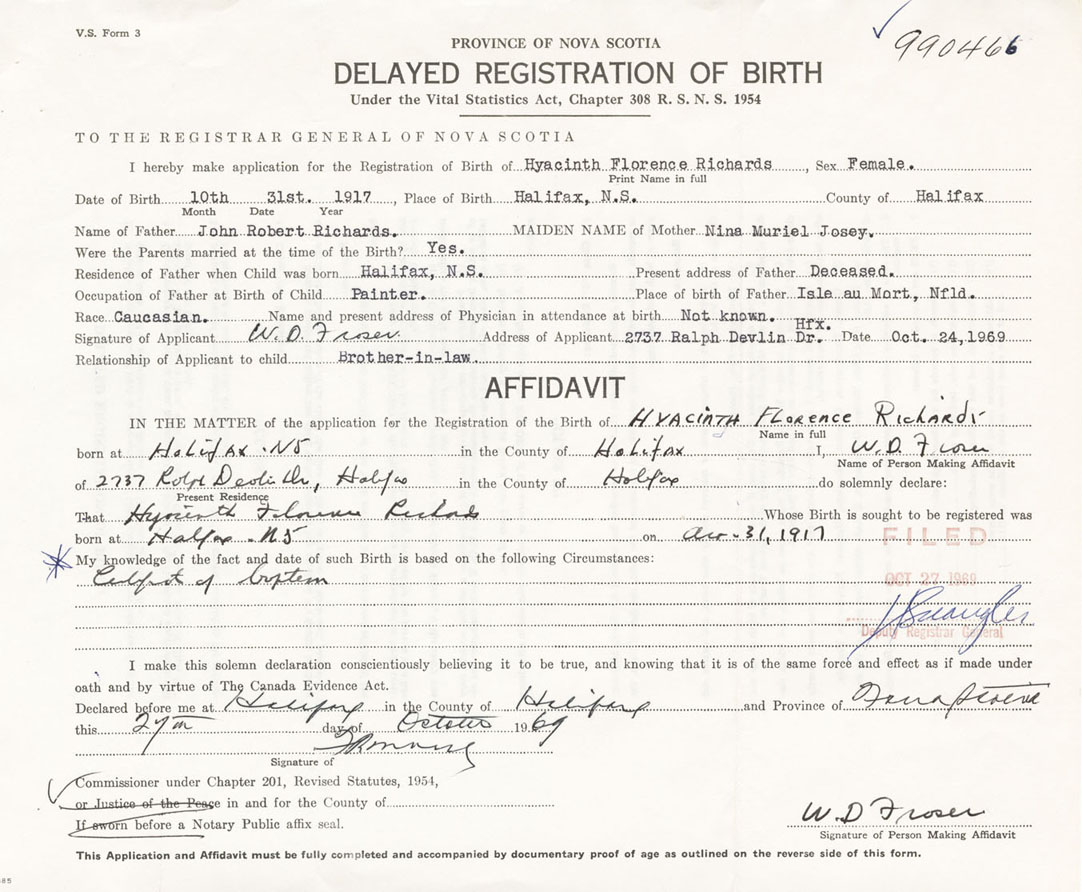 V.S. Form 3
990466
PROVINCE OF NOVA SCOTIA
DELAYED REGISTRATION OF BIRTH
Under the Vital Statistics Act, Chapter 308 R. S. N. S. 1954
TO THE REGISTRAR GENERAL OF NOVA SCOTIA
I hereby make application for the Registration of Birth of Hyacinth Florence Richards, Sex Female.
Print Name in full
Date of Birth 10th 31st. 1917, Place of Birth Halifax, N.S. County of Halifax
Month Date Year
Name of Father John Robert Richards. MAIDEN NAME of Mother Nina Muriel Josey.
Were the Parents married at the time of the Birth? Yes.
Residence of Father when Child was born Halifax, N.S. Present address of Father Deceased.
Occupation of Father at Birth of Child Painter. Place of birth of Father Isle au Mort, Nfld.
Race Caucasian. Name and present address of Physician in attendance at birth Not known.
Hfx.
Signature of Applicant W. D. Fraser Address of Applicant 2737 Ralph Devlin Dr. Date Oct. 24, 1969
Relationship of Applicant to child Brother-in-law.
AFFIDAVIT
IN THE MATTER of the application for the Registration of the Birth of HYACINTH FLORENCE RICHARDS
Name in full
born at Halifax NS in the County of Halifax I, W. D. Fraser
Name of Person Making Affidavit
of 2737 Ralph Devlin Dr, Halifax in the County of Halifax do solemnly declare:
Present Residence
That Hyacinth Florence Richards Whose Birth is sought to be registered was
born at Halifax NS on 31, 1917
FILED
My knowledge of the fact and date of such Birth is based on the following Circumstances:
of baptism
OCT 27 1969
Deputy Registrar General
I make this solemn declaration conscientiously believing it to be true, and knowing that it is of the same force and effect as if made under
oath and by virtue of The Canada Evidence Act.
Declared before me at Halifax in the County of Halifax and Province of Nova Scotia
this 27th day of October 1969
Signature of
Commissioner under Chapter 201, Revised Statutes, 1954,
or Justice of the Peace in and for the County of
If sworn before a Notary Public affix seal.
W. D. Fraser
Signature of Person Making Affidavit
This Application and Affidavit must be fully completed and accompanied by documentary proof of age as outlined on the reverse side of this form.